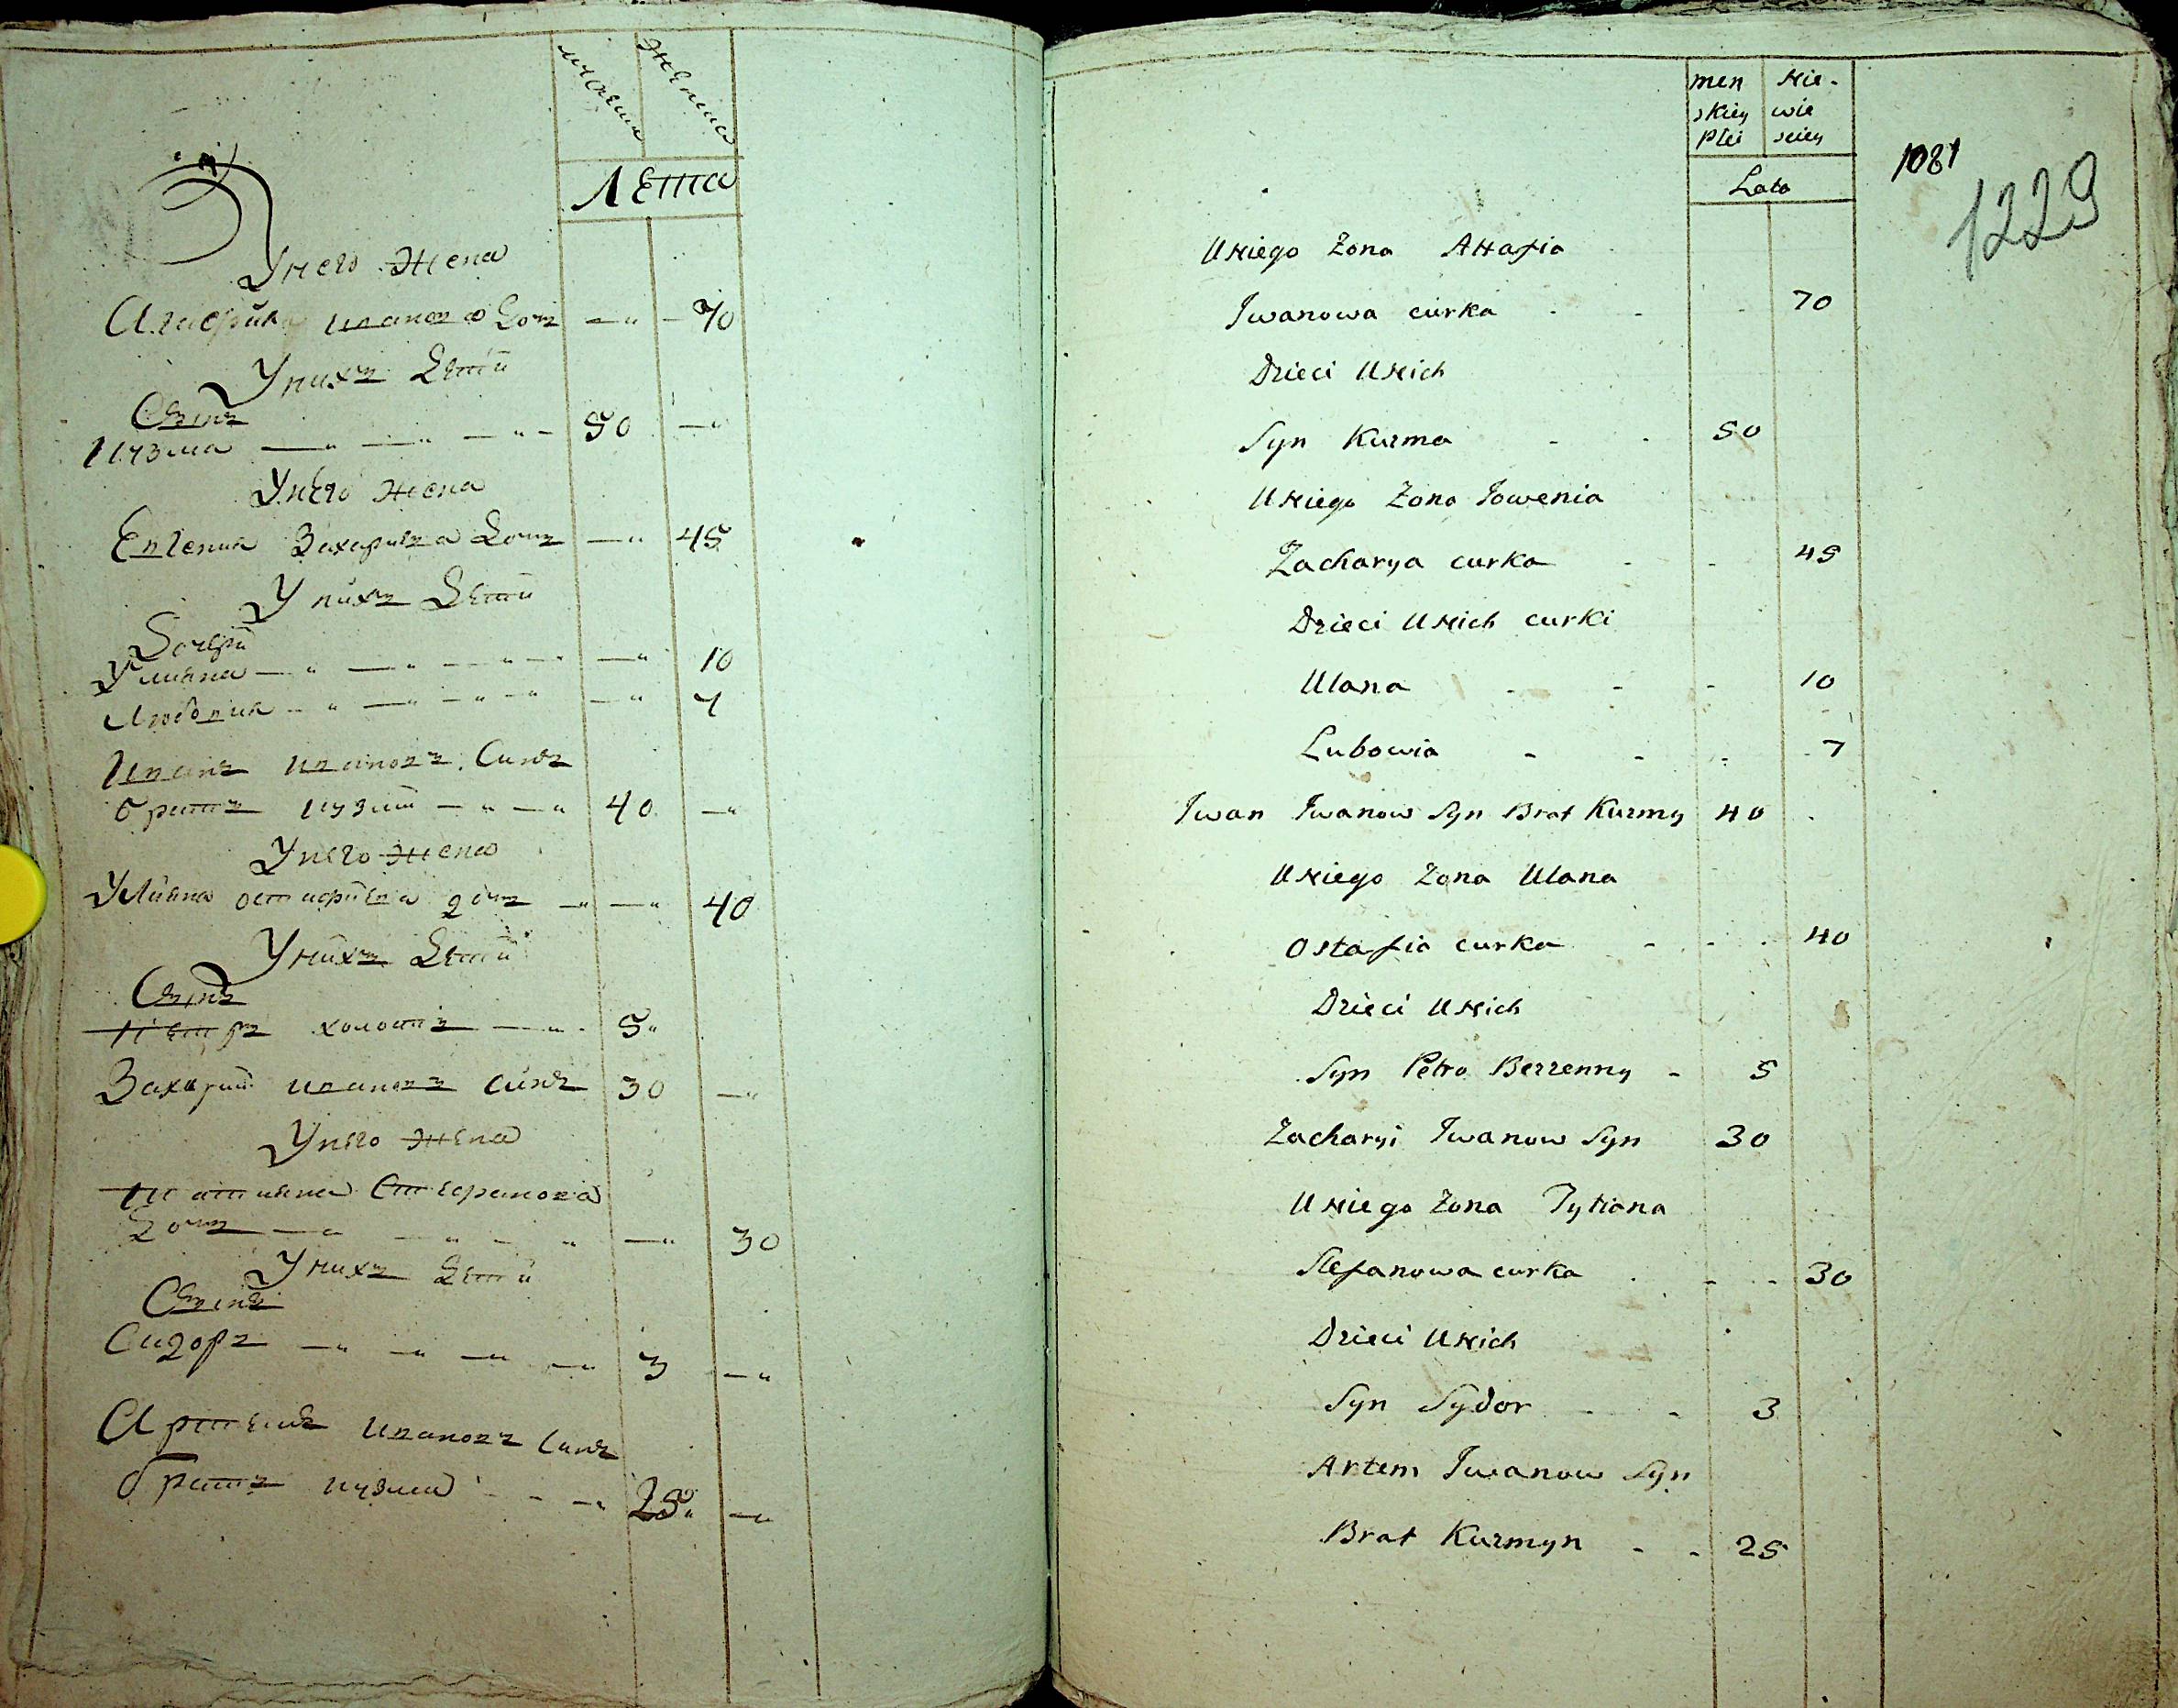 мужеска
женска
Лета
У него жена
Агафия Иванова дочь 70
У нихъ дети
Сынъ
Кузма 50
У него жена
Евгения Захариева дочь 45
У нихъ дети
Дочери
Улияна 10
Любовия 7
Иванъ Ивановъ Синъ
братъ Кузми 40
У него жена
Улияна остафиева дочь 40
У нихъ дети
Сынъ
Петръ холостъ 5
Захарий Ивановъ синъ 30
У него жена
Татияна Стефанова
дочь 30
У нихъ дети
Сынъ
Сидоръ 3
Артемъ Ивановъ синъ
братъ кузми 25
men Nie-
skiey wie
Płci sciey
Lata
1081
1229
U Niego Zona AHafia
Iwanowa curka 70
Dzieci U Nich
Syn Kuzma 50
U Niego Zona Iowenia
Zacharya curka 45
Dzieci U Nich curki
Ulana 10
Lubowia 7
Iwan Iwanow Syn Brat Kuzmy 40
U Niego Zona Ulana
Ostafia curka 40
Dzieci U Nich
Syn Petro Bezzenny 5
Zacharyi Iwanow Syn 30
U Niego Zona Tytiana
Stefanowa curka 30
Dzieci U Nich
Syn Sydor 3
Artem Iwanow Syn
Brat Kuzmyn 25